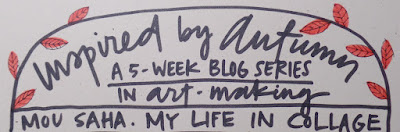 inspired by Autumn
A 5-WEEK BLOG SERIES
IN art-making
MOU SAHA. MY LIFE IN COLLAGE